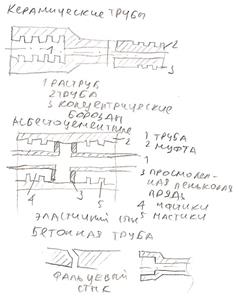 КЕРАМИЧЕСКИЕ ТРУБЫ
1
2
3
1 РАСТРУБ
2 ТРУБА
3 КОНЦЕНТРИЧЕСКИЕ
БОРОЗДЫ
АСБЕСТОЦЕМЕНТНЫЕ
2
1
3
4
5
1 ТРУБА
2 МУФТА
3 ПРОСМОЛЕН-
НАЯ ПЕНЬКОВАЯ
ПРЯДЬ
4 МАСТИКИ
5 МАСТИКИ
ЭЛАСТИЧНЫЙ СТЫК
БЕТОННАЯ ТРУБА
ФАЛЬЦЕВЫЙ
СТЫК